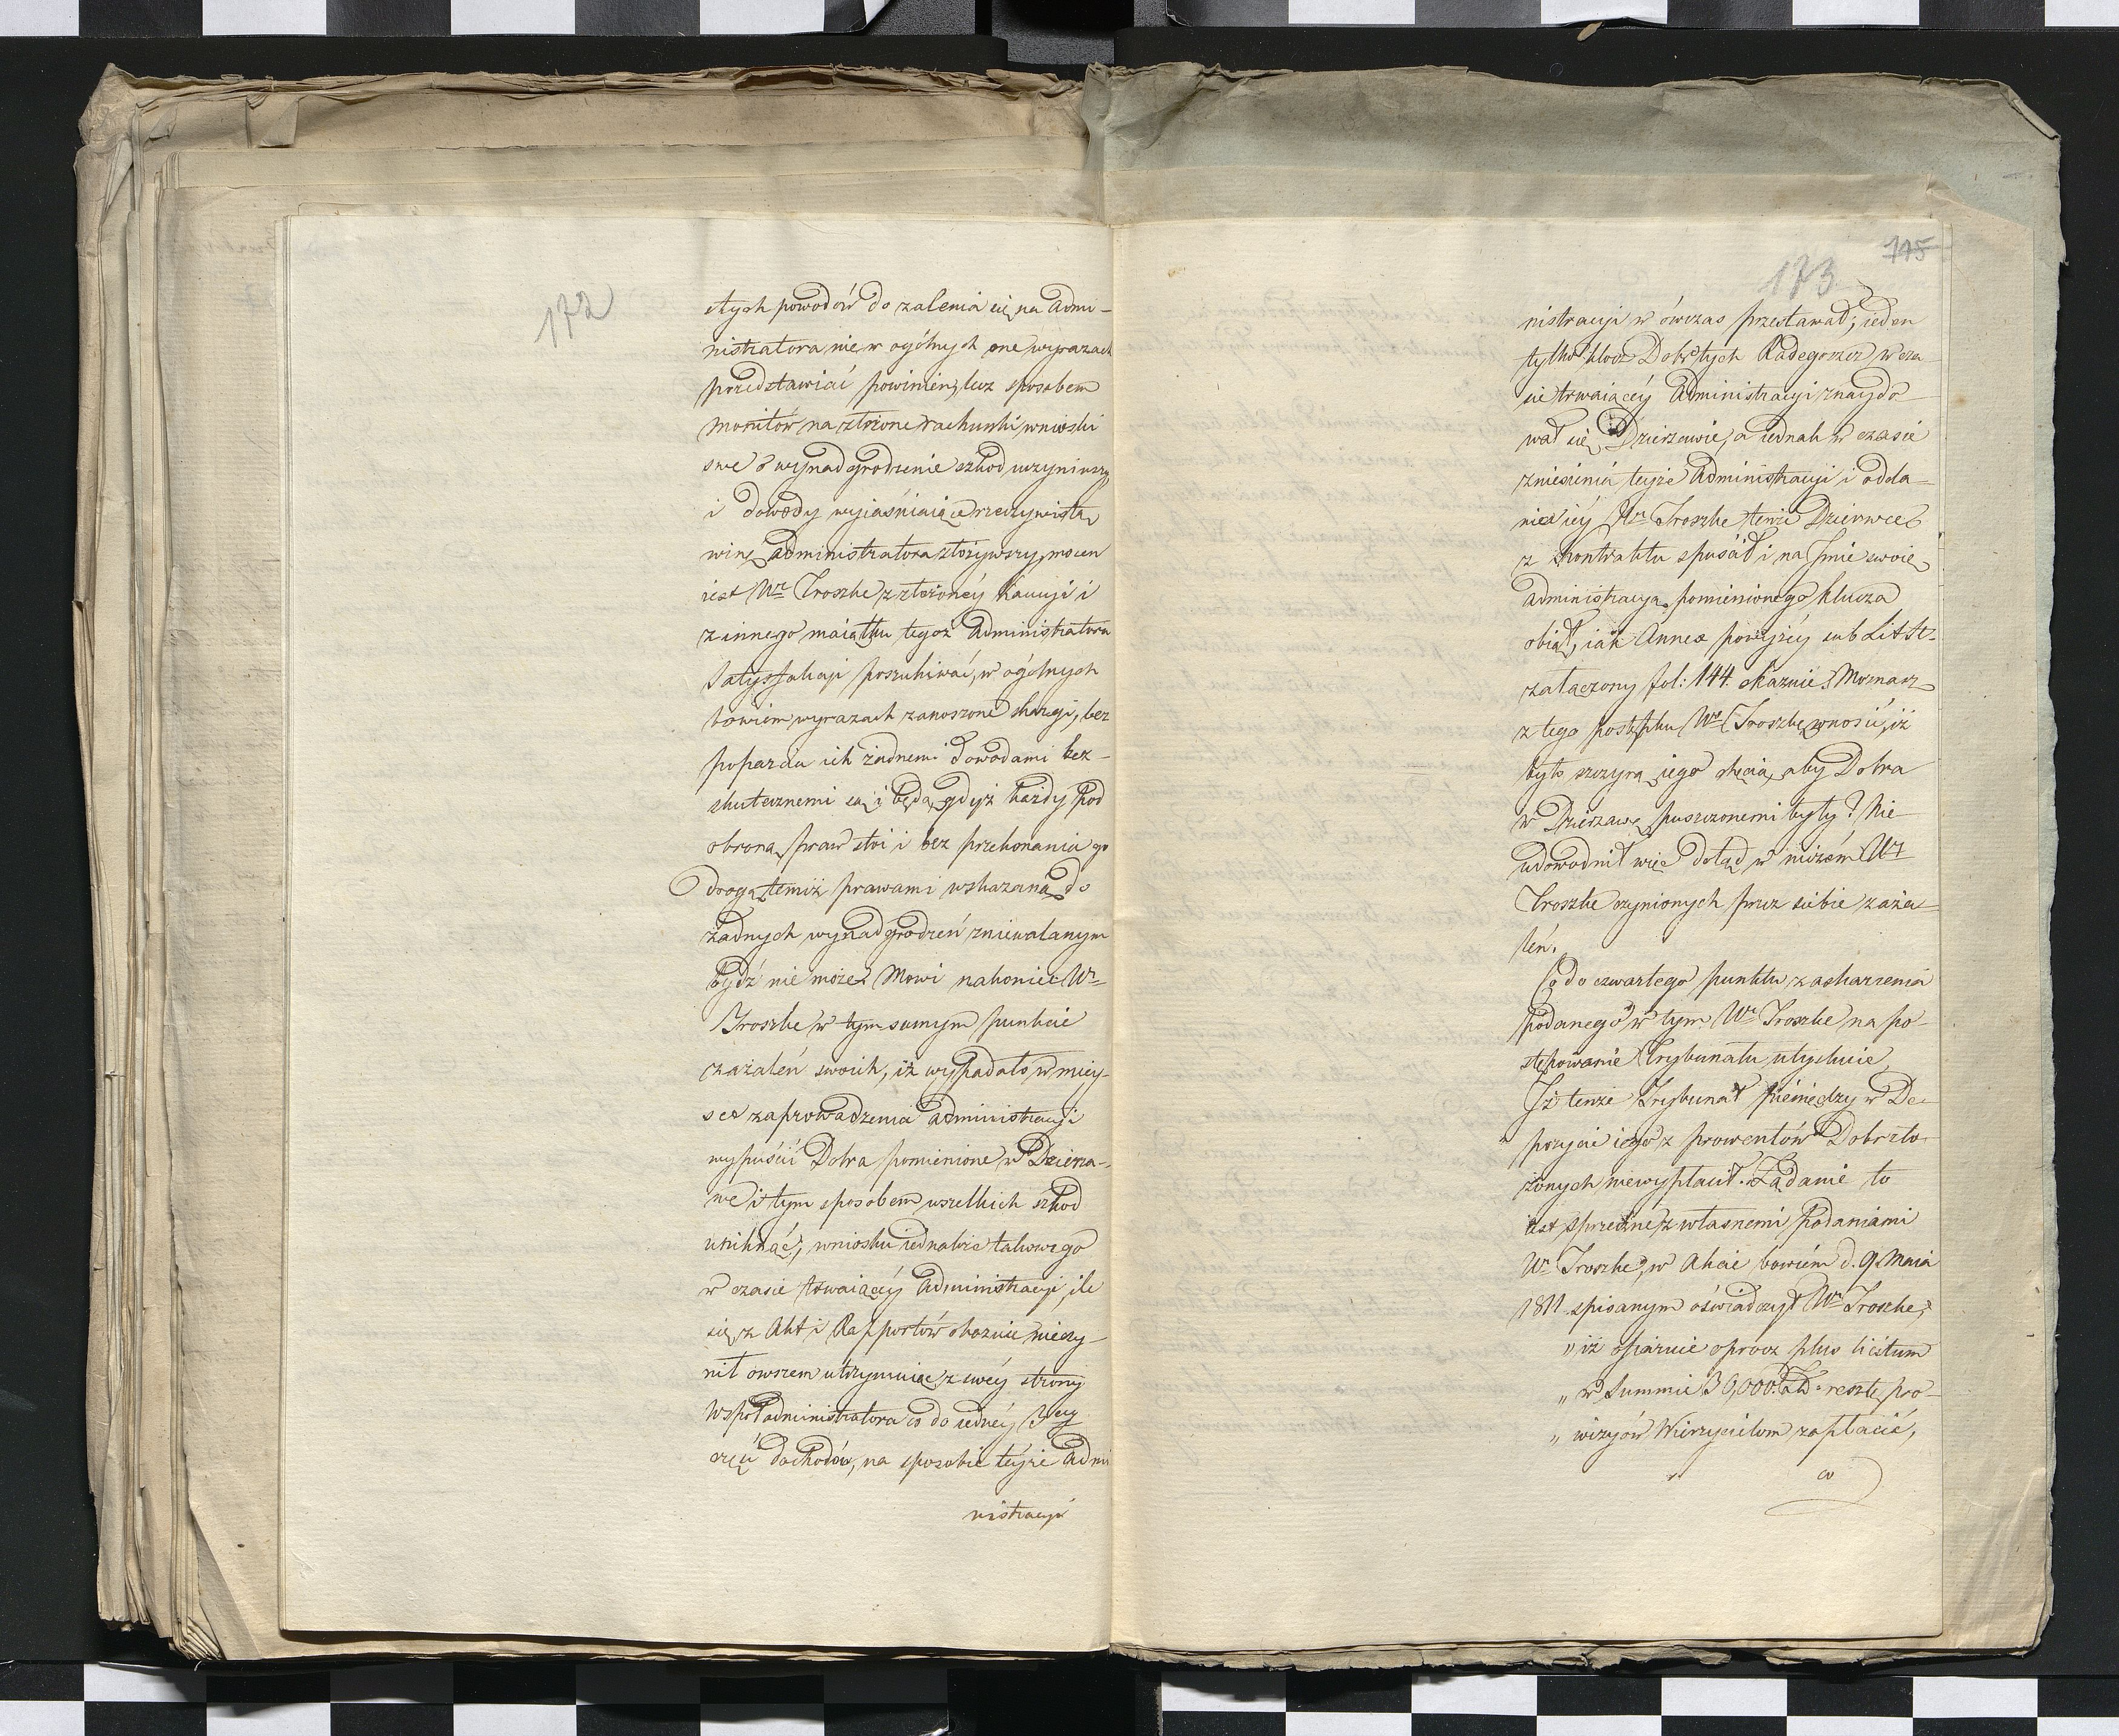 172
stych powodów do zalenia się na Admi-
nistratora nie w ogólnych one wyrazach
przedstawiać powinien, lecz sposobem
monitów na złożone rachunki wnioski
swe o wynadgrodzenie szkod uczyniwszy,
i dowody wyiaśniaiące rzeczywistą
winę Administratora złożywszy, mocen
iest Wr. Troszke z złożonéy Kaucyi i
z innego maiątku tegoż Administratora
Satysfakcyi poszukiwać, w ogólnych
bowiem wyrazach zanoszone skargi, bez
poparcia ich żadnemi dowodami bez-
skutecznemi są i będą, gdyż każdy pod
obroną praw stoi i bez przekonania go
drogą temiż prawami wskazaną do
żadnych wynadgrodzeń zniewalanym
bydź nie może. Mowi nakoniec Wr.
Troszke w tym samym punkcie
zażaleń swoich, iż wypadało w miey-
sce zaprowadzenia Administracyi
wypuścić Dobra pomienione w Dzierza-
we i tym sposobem wszelkich szkod
uniknąć, wniosku iednakże takowego
w czasie trwaiącéy Administracyi, ile
się z Akt i Rapportów okazuie nieczy-
nił owszem utrzymuiąc z swéy strony
Wspoładministratora co do iednéy 3ciey
części dochodów, na sposobie teyże Admi
nistracyi
175
173
nistracyi w ówczas przestawał; ieden
tylko klucz Dobr tych Radegoszcz w cza-
sie trwaiącéy Administracyi znaydo-
wał się w Dzierzawie, a iednak w czasie
zniesienia teyże Administracyi i odda-
nia iéy Wr. Troszke tenże Dzierzawcę
z Kontraktu spuścił i na Imie swoie
Administracyą pomienionego klucza
obiął, iak Annex powyżéy sub Litt
załączony fol: 144. okazuie. Możnasz
z tego postępku Wo Troszke wnosić, iż
było szczyrą iego chęcią, aby Dobra
w Dzierzawę puszczonemi były? Nie
udowodnił więc dotąd w niczém Wr
Troszke czynionych przez siebie zaża-
leń.
Co do czwartego punktu zaskarzenia
podanego w tym Wr Troszke na po-
stępowanie Trybunału utyskuie,
Iż tenże Trybunał pieniędzy w De-
pozycie iego z prowentów Dobr zło-
żonych niewypłacił. Żądanie to
iest sprzeczne z własnemi podaniami
Wr. Troszke, w Akcie bowiem d. 9 Maia
1811 spisanym oświadczył Wr Troszke,
„ iż ofiaruie oprocz plus licitum
„ w Summie 30,000. Złł. resztę pro-
„ wizyów Wierzycielom zapłacić,
co